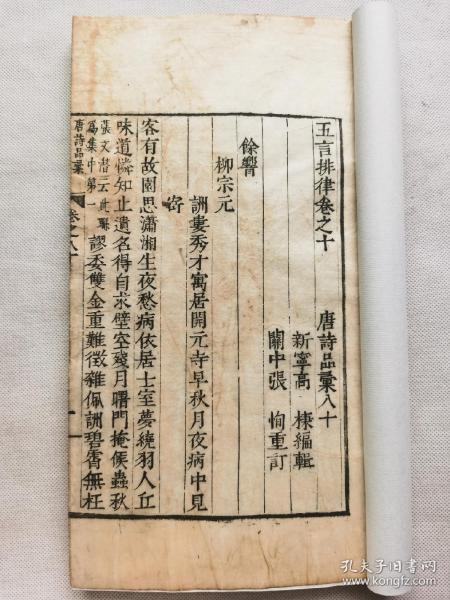 五言排律卷之十　唐詩品彙八十
新寧高　棅編輯
關中張　恂重訂
餘響
柳宗元
詶婁秀才寓居開元寺早秋月夜病中見
寄
客有故園思瀟湘生夜愁病依居士室夢繞羽人丘
味道憐知止遺名得自求壁空殘月曙門掩候蟲秋
張文潛云此聯
爲集中第一
謬委雙金重難徵雜佩詶碧霄無枉
唐詩品彙　卷之八十　一
孔夫子旧书网
www.kongfz.com